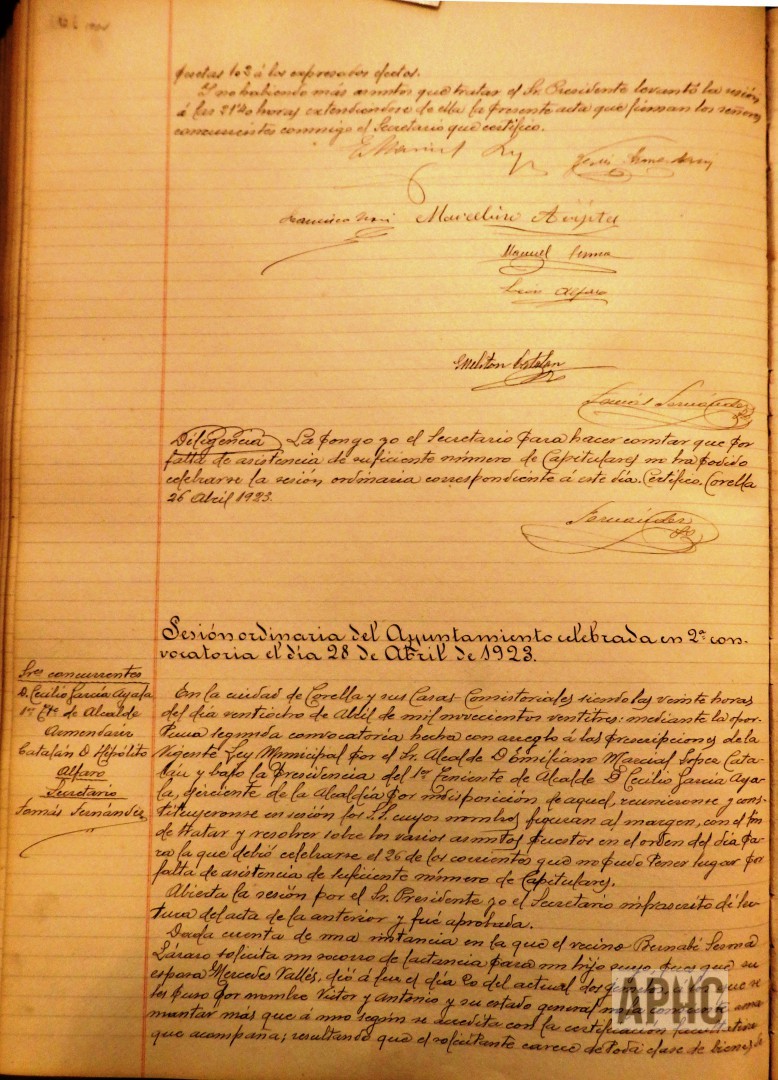 puestas 1 o 2 á los expresados efectos.
Y no habiendo más asuntos que tratar el Sr. Presidente levantó la sesión
á las 21'40 horas extendiéndose de ella la presente acta que firman los señores
concurrentes conmigo el Secretario que certifico.
Marcelino
Manuel Sesma
León Alfaro
Meliton Catalán
Tomás Fernández
Diligencia La pongo yo el Secretario para hacer constar que por
falta de asistencia de suficiente número de Capitulares no ha podido
celebrarse la sesión ordinaria correspondiente á este día. Certifico. Corella
26 Abril 1923.
Fernández
Sesión ordinaria del Ayuntamiento celebrada en 2ª con-
vocatoria el día 28 de Abril de 1923.
Sres concurrentes
D. Cecilio García Ayala
1er Tte de Alcalde
Armendariz
Catalán D Hipólito
Alfaro
Secretario
Tomás Fernández
En la ciudad de Corella y sus Casas Consistoriales siendo las veinte horas
del día ventiocho de Abril de mil novecientos ventitres: mediante la opor-
tuna segunda convocatoria hecha con arreglo á las prescripciones de la
Vigente Ley Municipal por el Sr. Alcalde D. Emiliano Marcial Lopez Cata-
lán y bajo la presidencia del 1er Teniente de Alcalde D. Cecilio García Aya-
la, ejerciente de la Alcaldía por indisposición de aquel, reuniéronse y cons-
tituyeronse en sesión los SS. cuyos nombres figuran al margen, con el fin
de tratar y resolver sobre los varios asuntos puestos en el orden del día pa-
ra la que debió celebrarse el 26 de los corrientes que no pudo tener lugar por
falta de asistencia de suficiente número de Capitulares.
Abierta la sesión por el Sr. Presidente yo el Secretario infrascrito dí lec-
tura del acta de la anterior y fué aprobada.
Dada cuenta de una instancia en la que el vecino Bernabé Sesma
Lázaro solicita un socorro de lactancia para un hijo suyo pues que su
esposa Mercedes Vallés, dió á luz el día 20 del actual dos gemelos que se
les puso por nombre Victor y Antonio y su estado general no la consiente ama-
mantar más que á uno según se acredita con la certificación facultativa
que acompaña; resultando que el solicitante carece de toda clase de bienes de
APHC